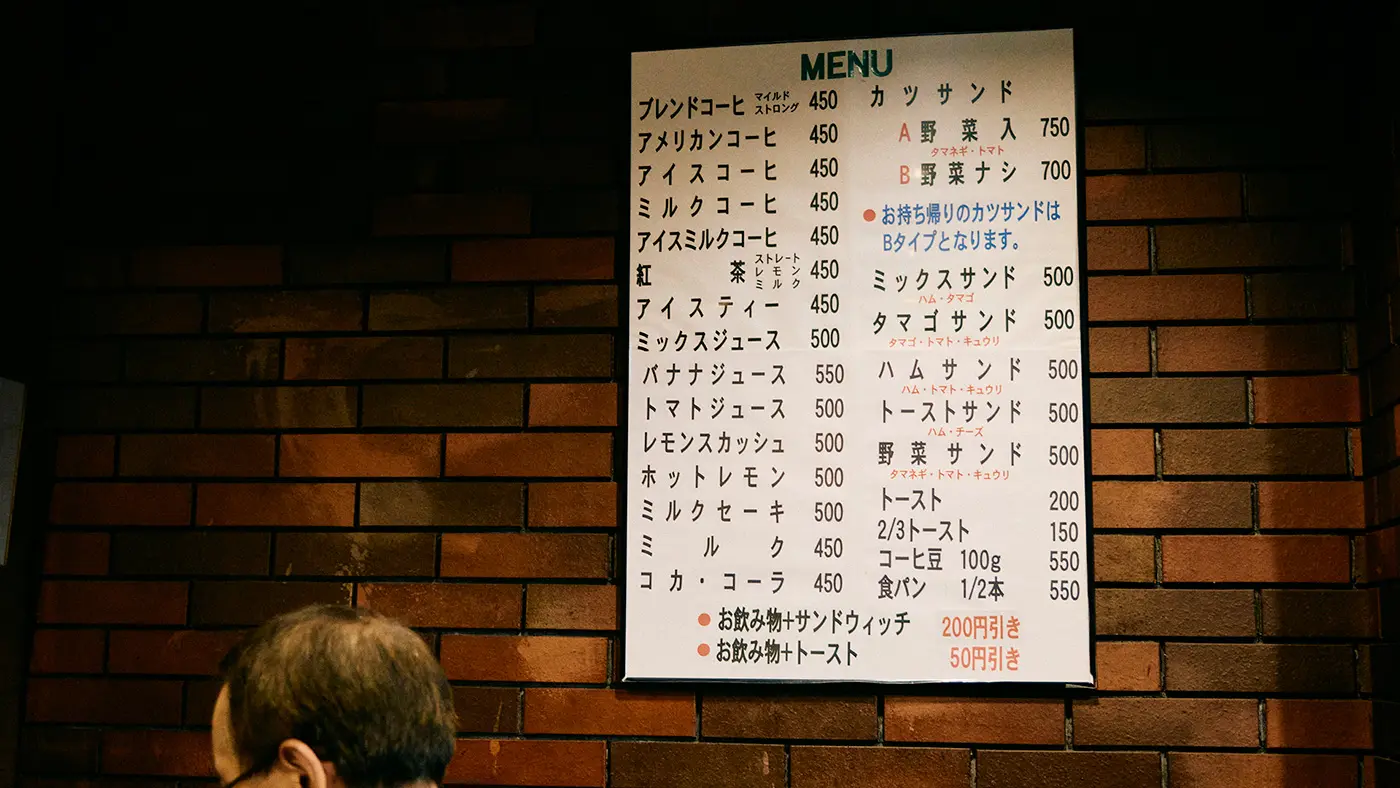 MENU
ブレンドコーヒ マイルド ストロング 450
アメリカンコーヒ 450
アイスコーヒ 450
ミルクコーヒ 450
アイスミルクコーヒ 450
紅茶 ストレート レモン ミルク 450
アイスティー 450
ミックスジュース 500
バナナジュース 550
トマトジュース 500
レモンスカッシュ 500
ホットレモン 500
ミルクセーキ 500
ミルク 450
コカ・コーラ 450
カツサンド
A 野菜入 750
タマネギ・トマト
B 野菜ナシ 700
●お持ち帰りのカツサンドは
Bタイプとなります。
ミックスサンド 500
ハム・タマゴ
タマゴサンド 500
タマゴ・トマト・キュウリ
ハムサンド 500
ハム・トマト・キュウリ
トーストサンド 500
ハム・チーズ
野菜サンド 500
タマネギ・トマト・キュウリ
トースト 200
2/3トースト 150
コーヒ豆 100g 550
食パン 1/2本 550
●お飲み物+サンドウィッチ 200円引き
●お飲み物+トースト 50円引き